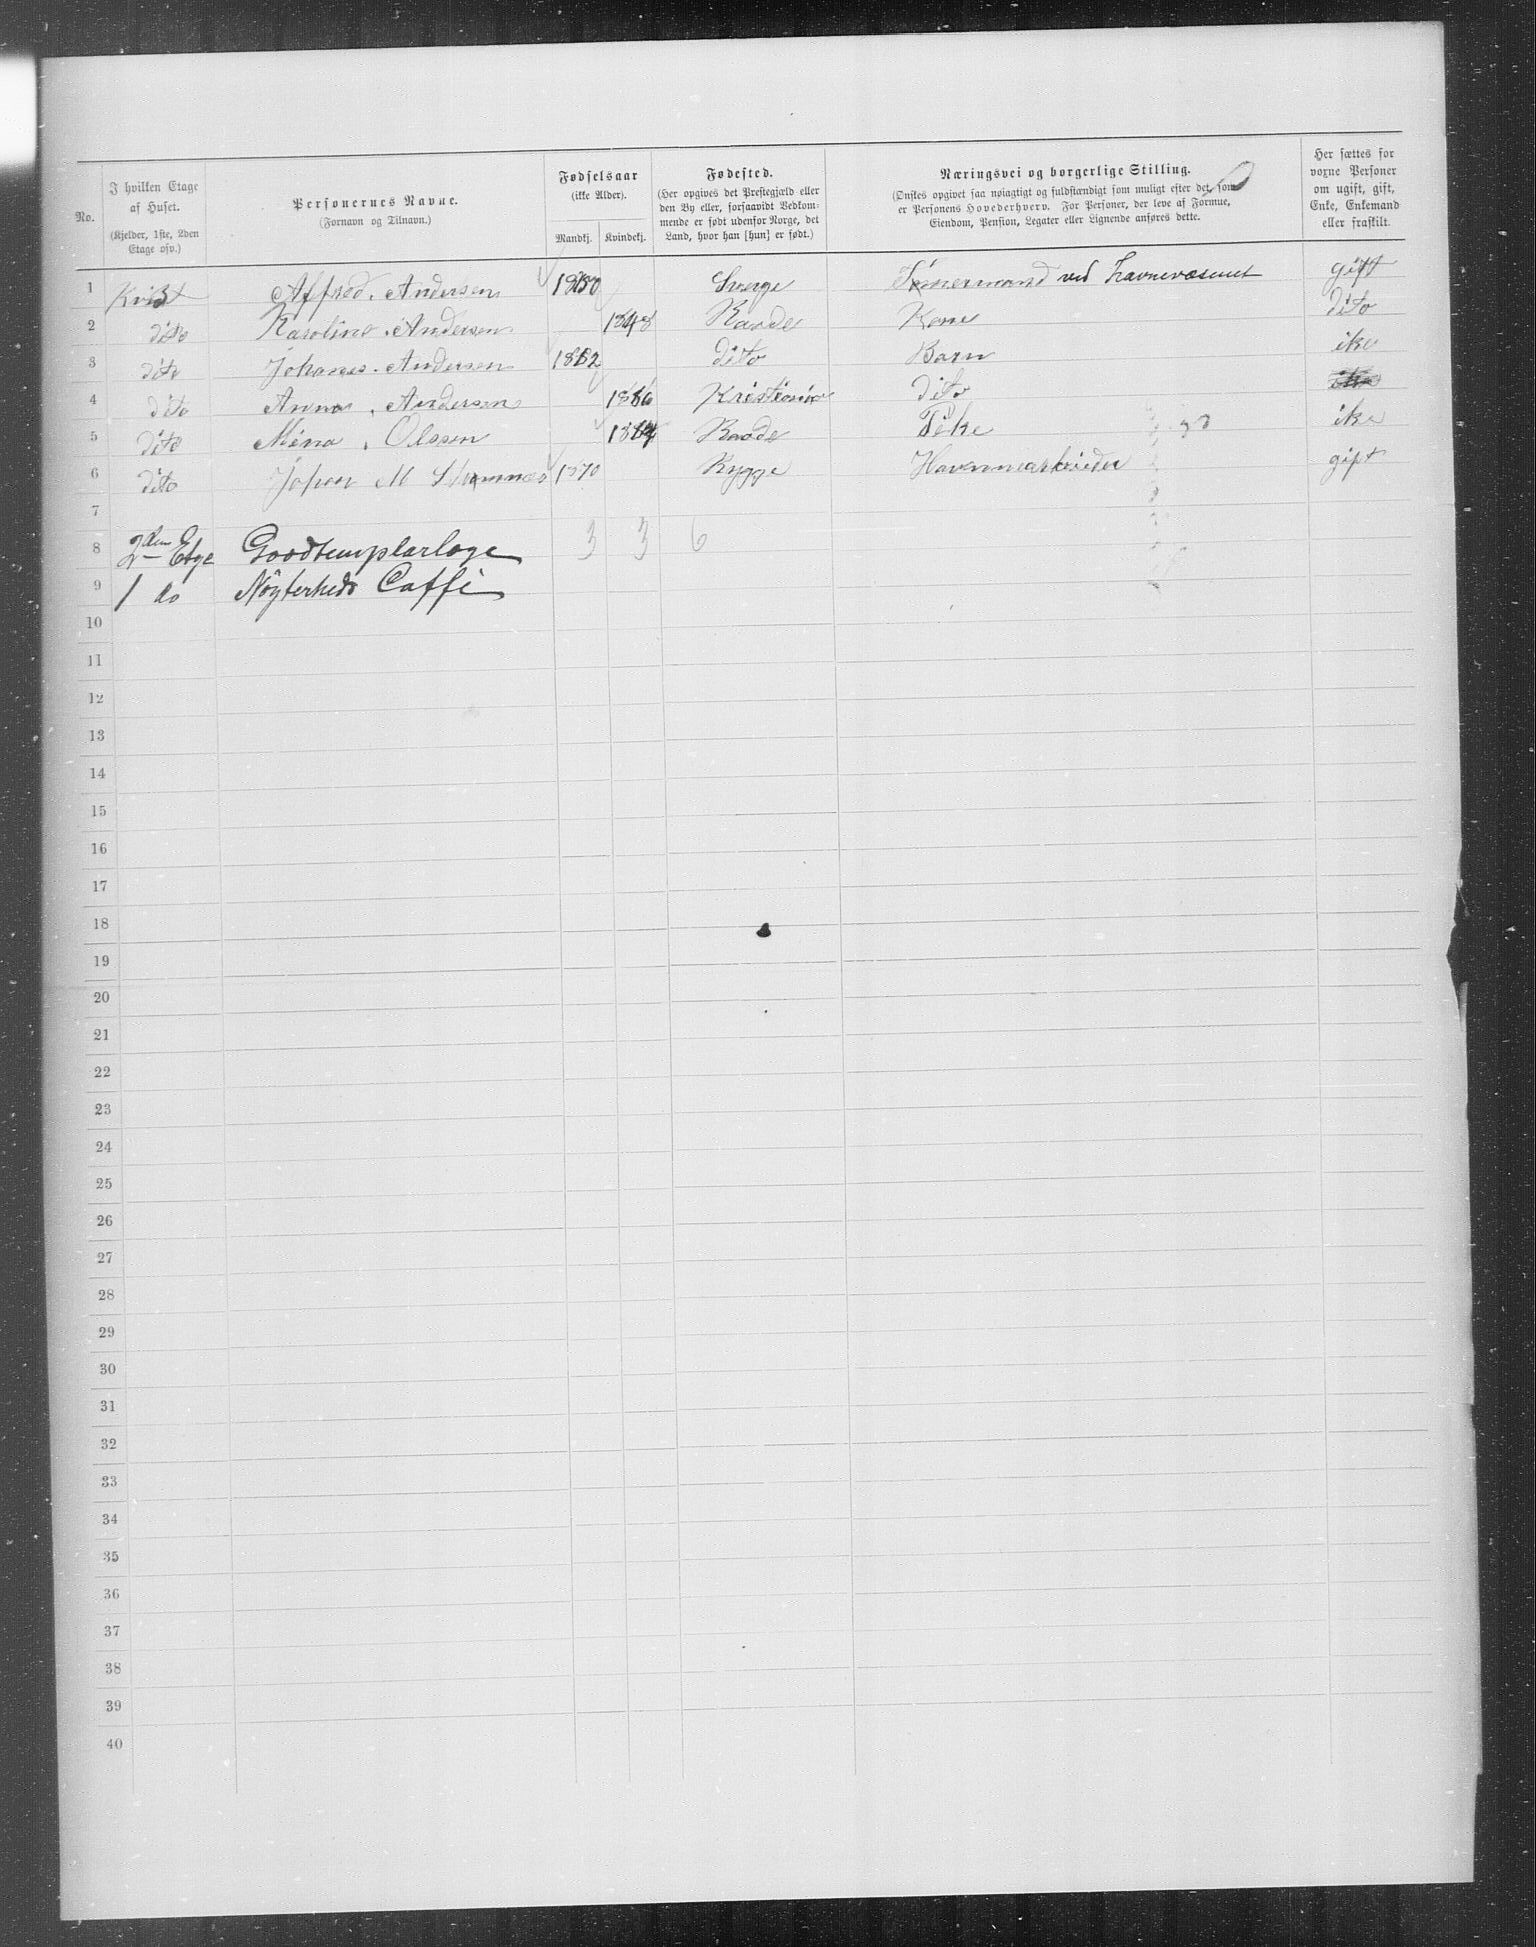 No.
I hvilken Etage af Huset.
(Kjelder, 1ste, 2den Etage osv.)
Personernes Navne.
(Fornavn og Tilnavn.)
Fødselsaar
(ikke Alder).
Mandkj. Kvindekj.
Fødested.
(Her opgives det Prestegjæld eller
den By eller, forsaavidt Vedkom-
mende er født udenfor Norge, det
Land, hvor han [hun] er født.)
Næringsvei og borgerlige Stilling.
(Ønskes opgivet saa nøiagtigt og fuldstændigt som muligt efter det, som
er Personens Hovederhverv. For Personer, der leve af Formue,
Eiendom, Pension, Legater eller Lignende anføres dette.
Her sættes for
voxne Personer
om ugift, gift,
Enke, Enkemand
eller fraskilt.
1 Kvist Alfred. Andersen 1850 Sverge Tømermand ved Havnevæsenet gift
2 dito Karoline. Andersen 1848 Raade Kone dito
3 dito Johanes. Andersen 1882 dito Barn ike
4 dito Anna. Andersen 1886 Kristiania dito
5 dito Mina. Olssen Raade Pike ike
6 dito Johan M 1870 Rygge Havnearbeider gift
7
8 2den Etge Goodtemplarloge 3 3 6
9 1 do Nøgterheds Caffe
10
11
12
13
14
15
16
17
18
19
20
21
22
23
24
25
26
27
28
29
30
31
32
33
34
35
36
37
38
39
40